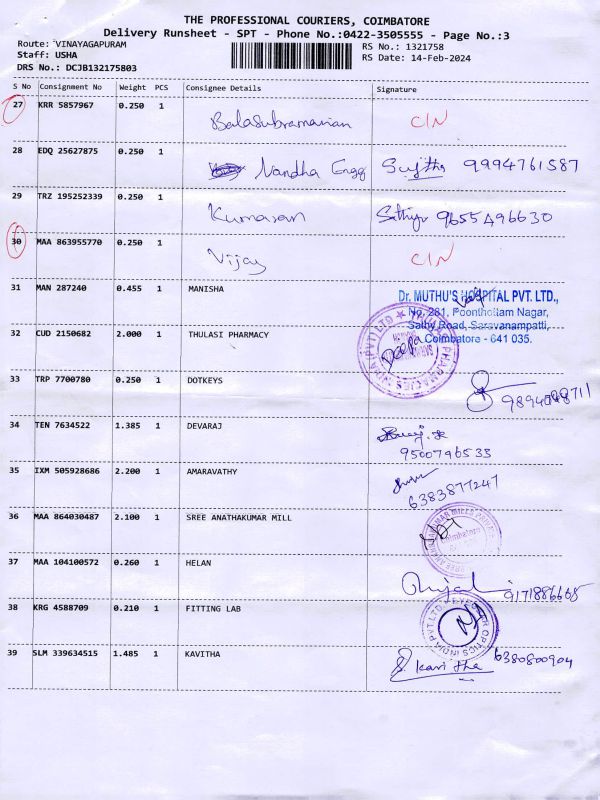 THE PROFESSIONAL COURIERS, COIMBATORE
Delivery Runsheet - SPT - Phone No.:0422-3505555 - Page No.:3
Route: VINAYAGAPURAM
Staff: USHA
DRS No.: DCJB132175803
RS No.: 1321758
RS Date: 14-Feb-2024
S No Consignment No Weight PCS Consignee Details Signature
27 KRR 5857967 0.250 1 Balasubramanian C/N
28 EDQ 25627875 0.250 1 Nandha Engg Sujitha 9994761587
29 TRZ 195252339 0.250 1 Kumaran 9655496630
30 MAA 863955770 0.250 1 Vijay C/N
31 MAN 287240 0.455 1 MANISHA
Dr. MUTHU'S HOSPITAL PVT. LTD.,
No. 281, Poonthottam Nagar,
Sathy Road, Saravanampatti,
Coimbatore - 641 035.
32 CUD 2150682 2.000 1 THULASI PHARMACY Deepa
33 TRP 7700780 0.250 1 DOTKEYS
34 TEN 7634522 1.385 1 DEVARAJ
9500796533
35 IXM 505928686 2.200 1 AMARAVATHY
6383877247
36 MAA 864030487 2.100 1 SREE ANATHAKUMAR MILL
Coimbatore
37 MAA 104100572 0.260 1 HELAN
38 KRG 4588709 0.210 1 FITTING LAB
39 SLM 339634515 1.485 1 KAVITHA S. Kavitha 6380800904